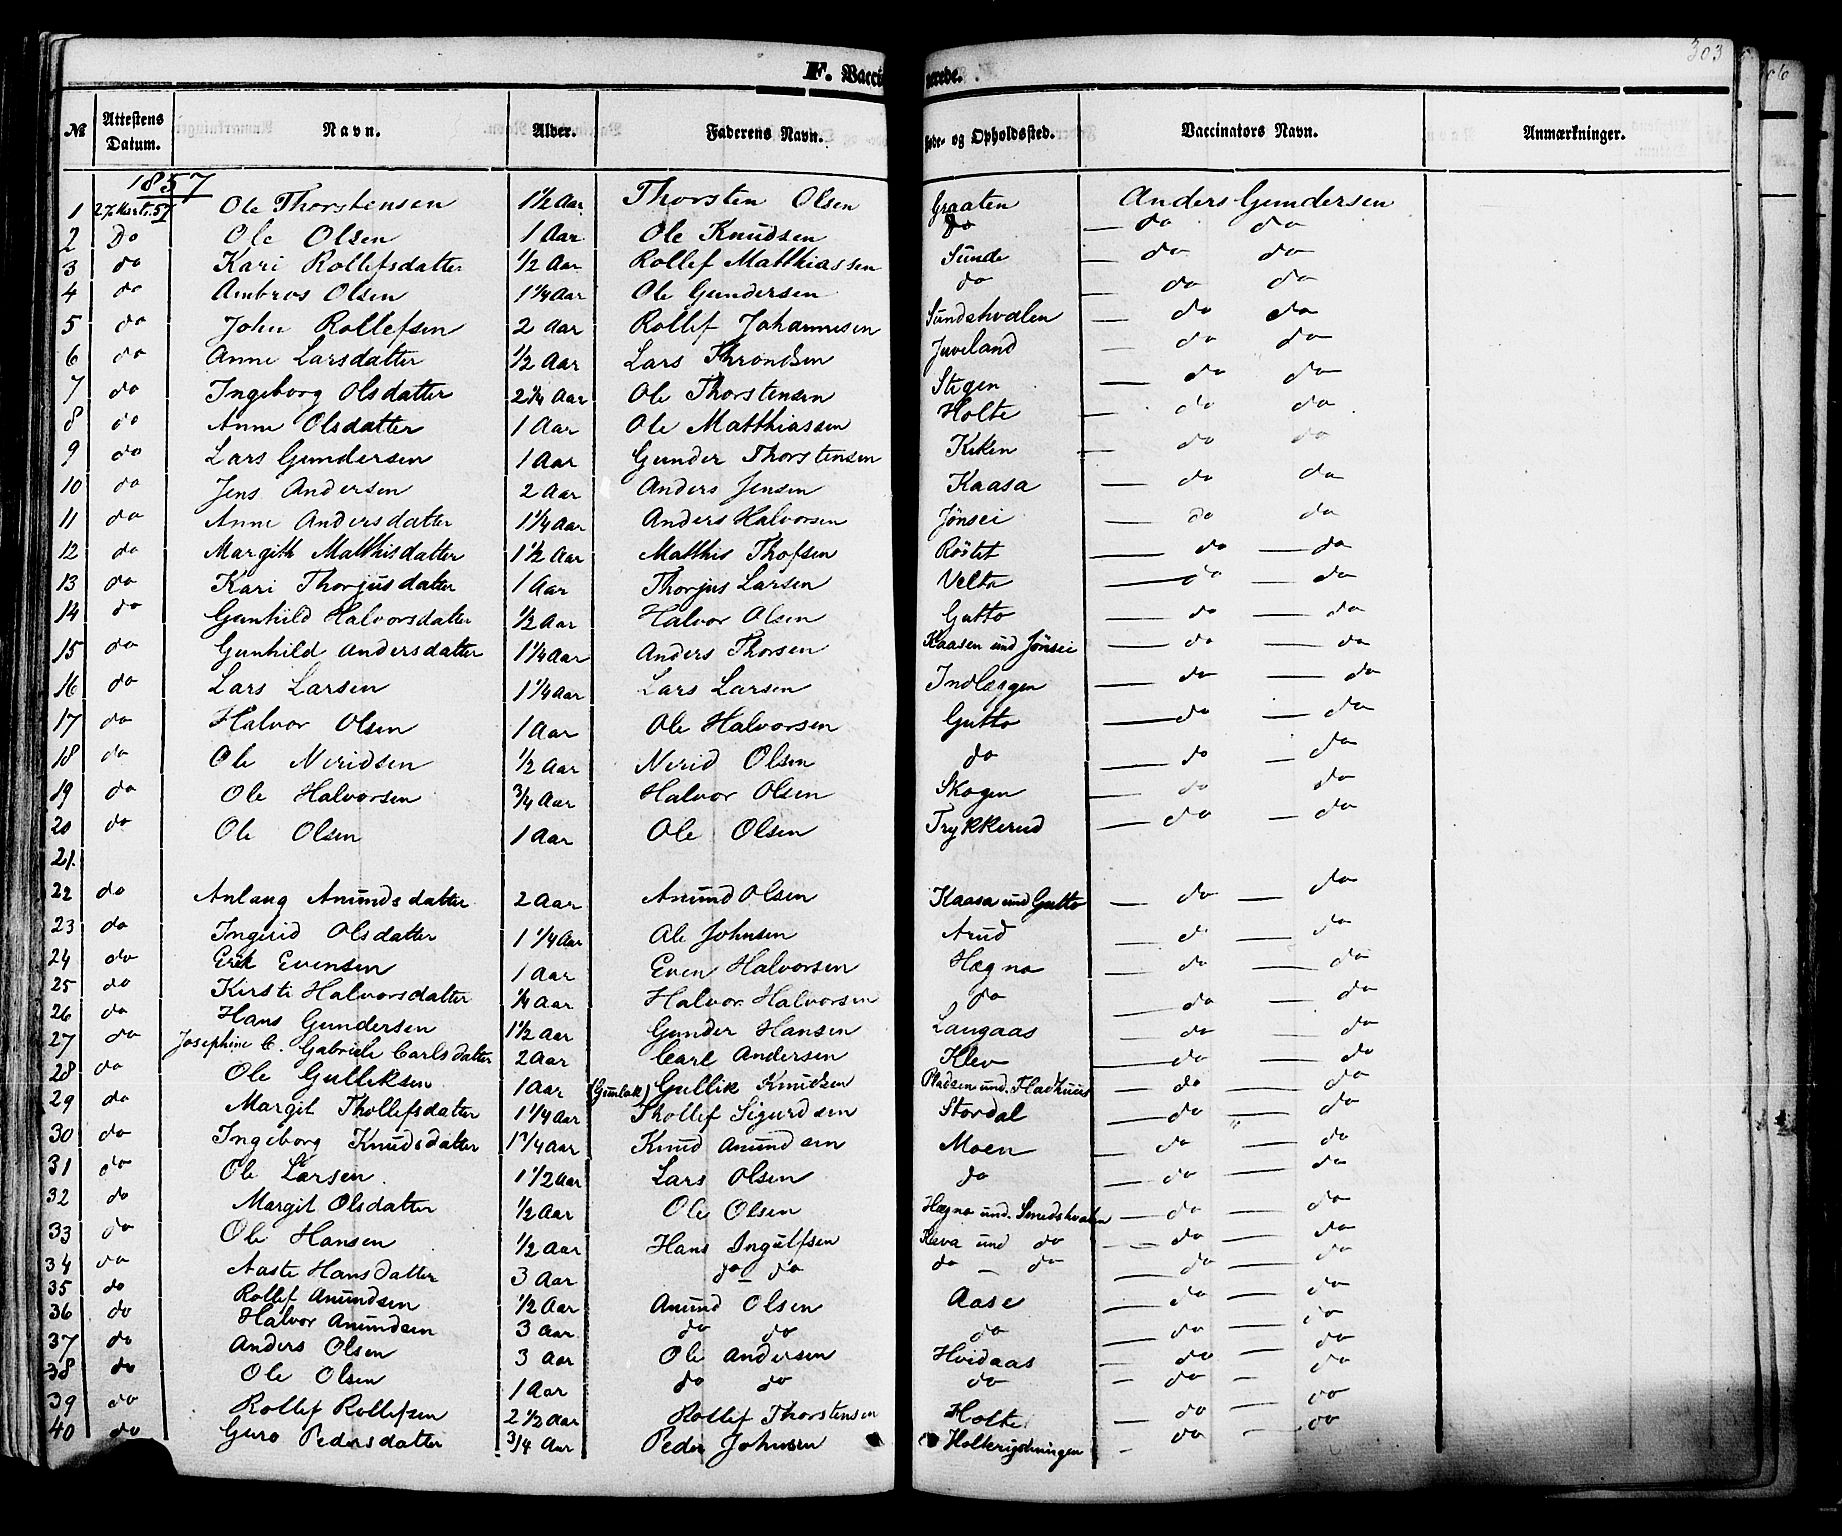 303
F. Vaccinerede.
№ Attestens Datum. Navn. Alder. Faderens Navn. Føde- og Opholdssted. Vaccinators Navn. Anmærkninger.
1857
1 27 Marts. 57 Ole Thorstensen 1½ Aar Thorsten Olsen Graaten Anders Gundersen
2 Do Ole Olsen 1 Aar Ole Knudsen do — do do
3 do Kari Rollefsdatter ½ Aar Rollef Matthiassen Sunde — do do
4 do Ambros Olsen 1¼ Aar Ole Gundersen do — do do
5 do John Rollefsen 2 Aar Rollef Johannesen Sundshvalen — do do
6 do Anne Larsdatter ½ Aar Lars Throndsen Juveland — do do
7 do Ingeborg Olsdatter 2¼ Aar Ole Thorstensen Stigen — do do
8 do Anne Olsdatter 1 Aar Ole Matthiassen Holte — do do
9 do Lars Gundersen 1 Aar Gunder Thorstensen Kiken — do do
10 do Jens Andersen 2 Aar Anders Jensen Kaasa — do do
11 do Anne Andersdatter 1¼ Aar Anders Halvorsen Jønsei — do do
12 do Margith Matthisdatter 1½ Aar Matthis Thofsen Röstet — do — do
13 do Kari Thorjusdatter 1 Aar Thorjus Larsen Velta — do — do
14 do Gunhild Halvorsdatter ½ Aar Halvor Olsen Gutto — do — do
15 do Gunhild Andersdatter 1¼ Aar Anders Thorsen Kaasen und Jønsei — do — do
16 do Lars Larsen 1¼ Aar Lars Larsen Indlægen — do — do
17 do Halvor Olsen 1 Aar Ole Halvorsen Gutto — do — do
18 do Ole Neridsen ½ Aar Nerid Olsen do — do — do
19 do Ole Halvorsen ¾ Aar Halvor Olsen Skogen — do do
20 do Ole Olsen 1 Aar Ole Olsen Trykkerud — do — do
21.
22 do Anlaug Anundsdatter 2 Aar Anund Olsen Kaasa und Gutto — do — do
23 do Ingerid Olsdatter 1¼ Aar Ole Johnsen Arud — do — do
24 do Erik Evensen 1 Aar Even Halvorsen Hægna — do — do
25 do Kirsti Halvorsdatter ¼ Aar Halvor Halvorsen do — do — do
26 do Hans Gundersen 1½ Aar Gunder Hansen Langaas — do — do
27 do Josephine C. Gabriele Carlsdatter 2 Aar Carl Andersen Klev — do — do
28 do Ole Gulleksen 1 Aar (Gunlak) Gullik Knudsen Pladsen und. Fladhuus — do — do
29 do Margit Thollefsdatter 1¼ Aar Thollef Sigurdsen Stordal — do — do
30 do Ingeborg Knudsdatter 1¼ Aar Knud Anundsen Moen — do — do
31 do Ole Larsen. 1½ Aar Lars Olsen do — do — do
32 do Margit Olsdatter ½ Aar Ole Olsen Hægna und. Smedshvalen — do — do
33 do Ole Hansen ½ Aar Hans Ingulfsen Kleva und do — do — do
34 do Aaste Hansdatter 3 Aar do — do do — do — do — do
35 do Rollef Anundsen ½ Aar Anund Olsen Aase — do — do
36 do Halvor Anundsen 3 Aar do do do — do — do
37 do Anders Olsen 3 Aar Ole Andersen Hvidaas — do — do
38 do Ole Olsen 1 Aar do do do — do — do
39 do Rollef Rollefsen 2½ Aar Rollef Thorstensen Holte — do — do
40 do Guro Pedersdatter ¾ Aar Peder Johnsen — do — do